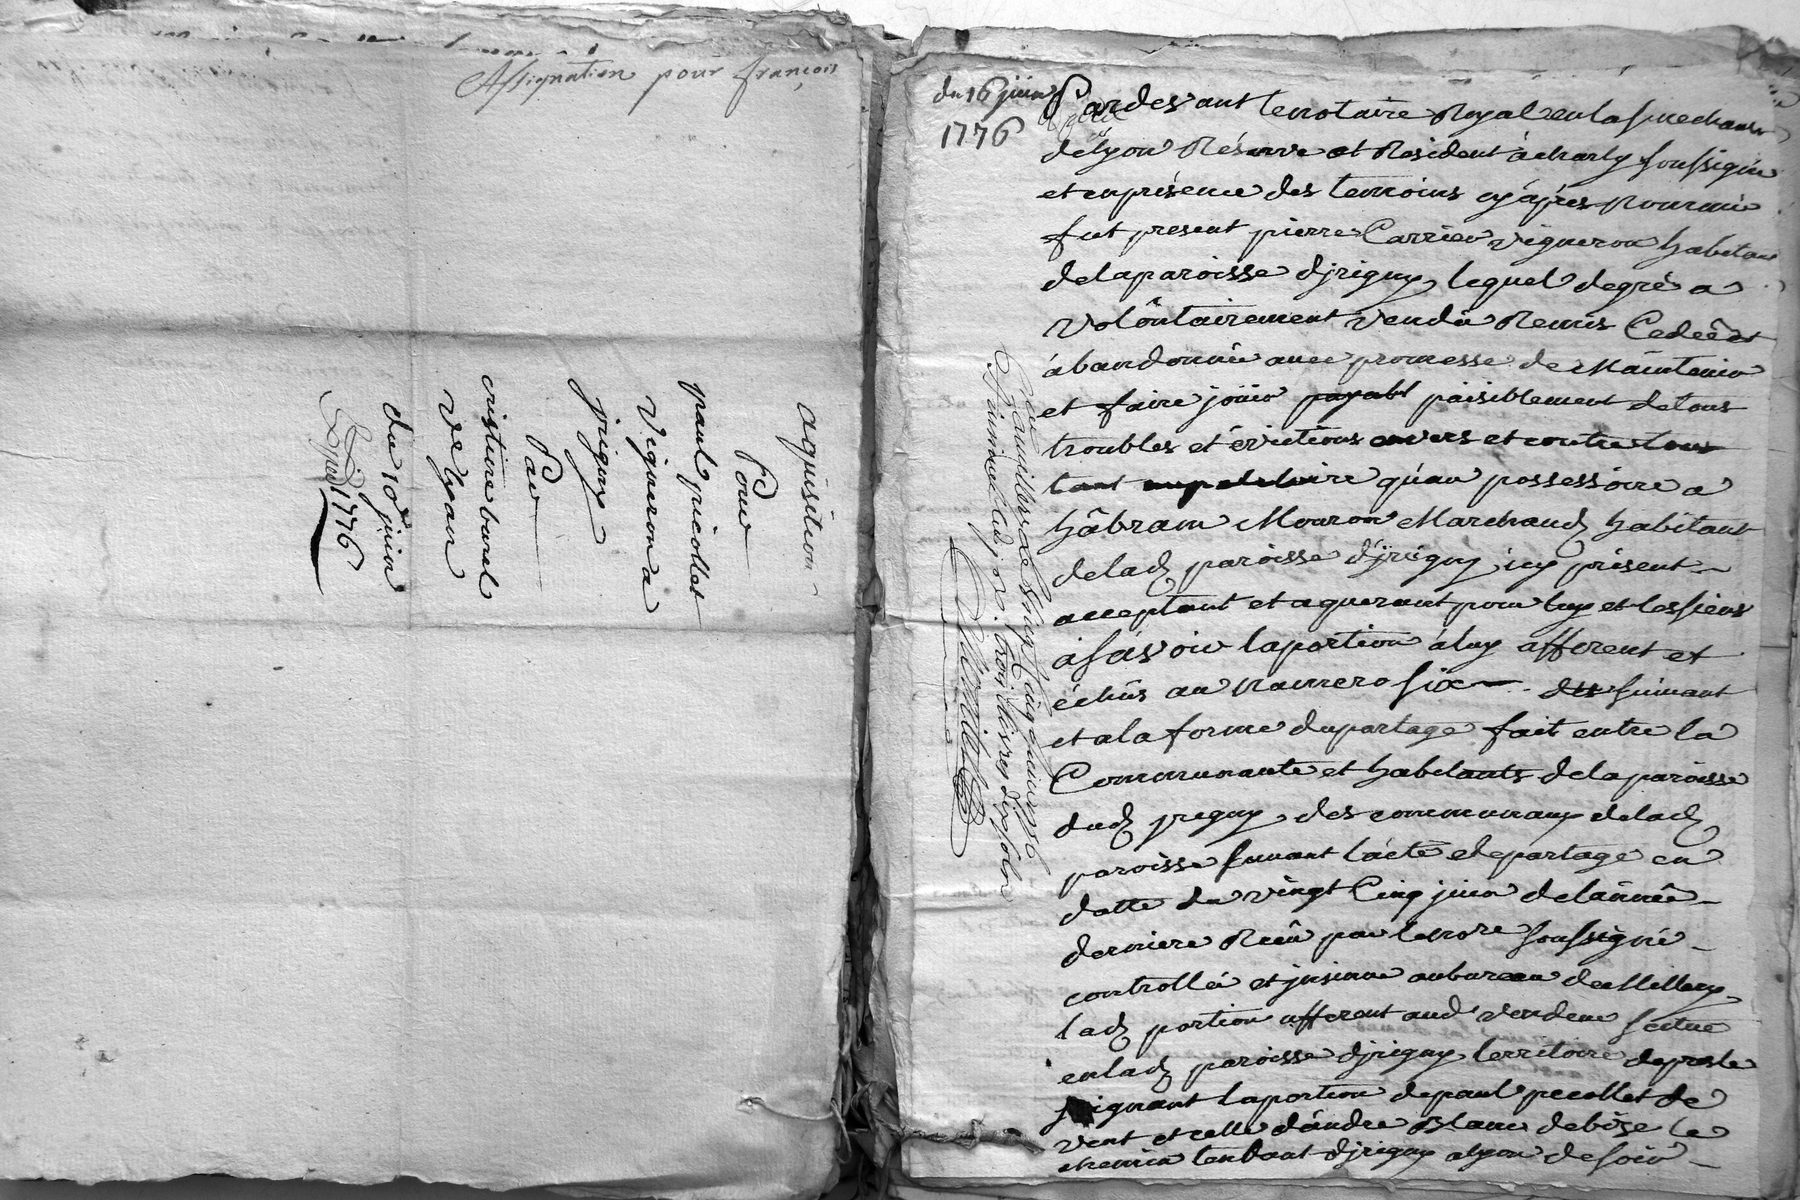 Assignation pour françois
aquisition
Pour
paul pricollet
Vigneron a
jrigny
Par
cristine burel
Ve Lyon
du 10e juin
1776
du 16 juin
1776
Pardevant le notaire Royal en la senechaussée
de Lyon Réservé et Resident à charly soussigné
et en présence des temoins cy aprés nommés
fut present pierre Carrier vigneron habitant
de la paroisse d'jrigny, lequel de gré a
volôntairement vendû Remis Cedée et
abandonnée avec promesse de Maintenir
et faire joüir payabl paisiblement de tous
troubles et évictions envers et contre tous
tant au petitoire qu'au possessoire a
hâbram Mouron Marchand habitant
de lad. paroisse d'jrigny icy présent
acceptant et aquerant pour luy et les siens
a sâvoir la portion a luy afferent et
échûs au numero six suivant
et a la forme du partage fait entre la
Communauté et habitants de la paroisse
dud. jrigny, des communaux de lad.
paroisse suivant l'acte de partage en
datte du vingt Cinq juin de lannée
derniere Recû par le nore soussigné
controllée et jnsinué au bureau de Millery
lad. portion afferent aud. vendeur scitué
en lad. paroisse d'jrigny territoire de presle
joignant la portion de paul pecollet de
vent et celle d'andre Blanc de bise le
chemin tendant d'jrigny a lyon de soir